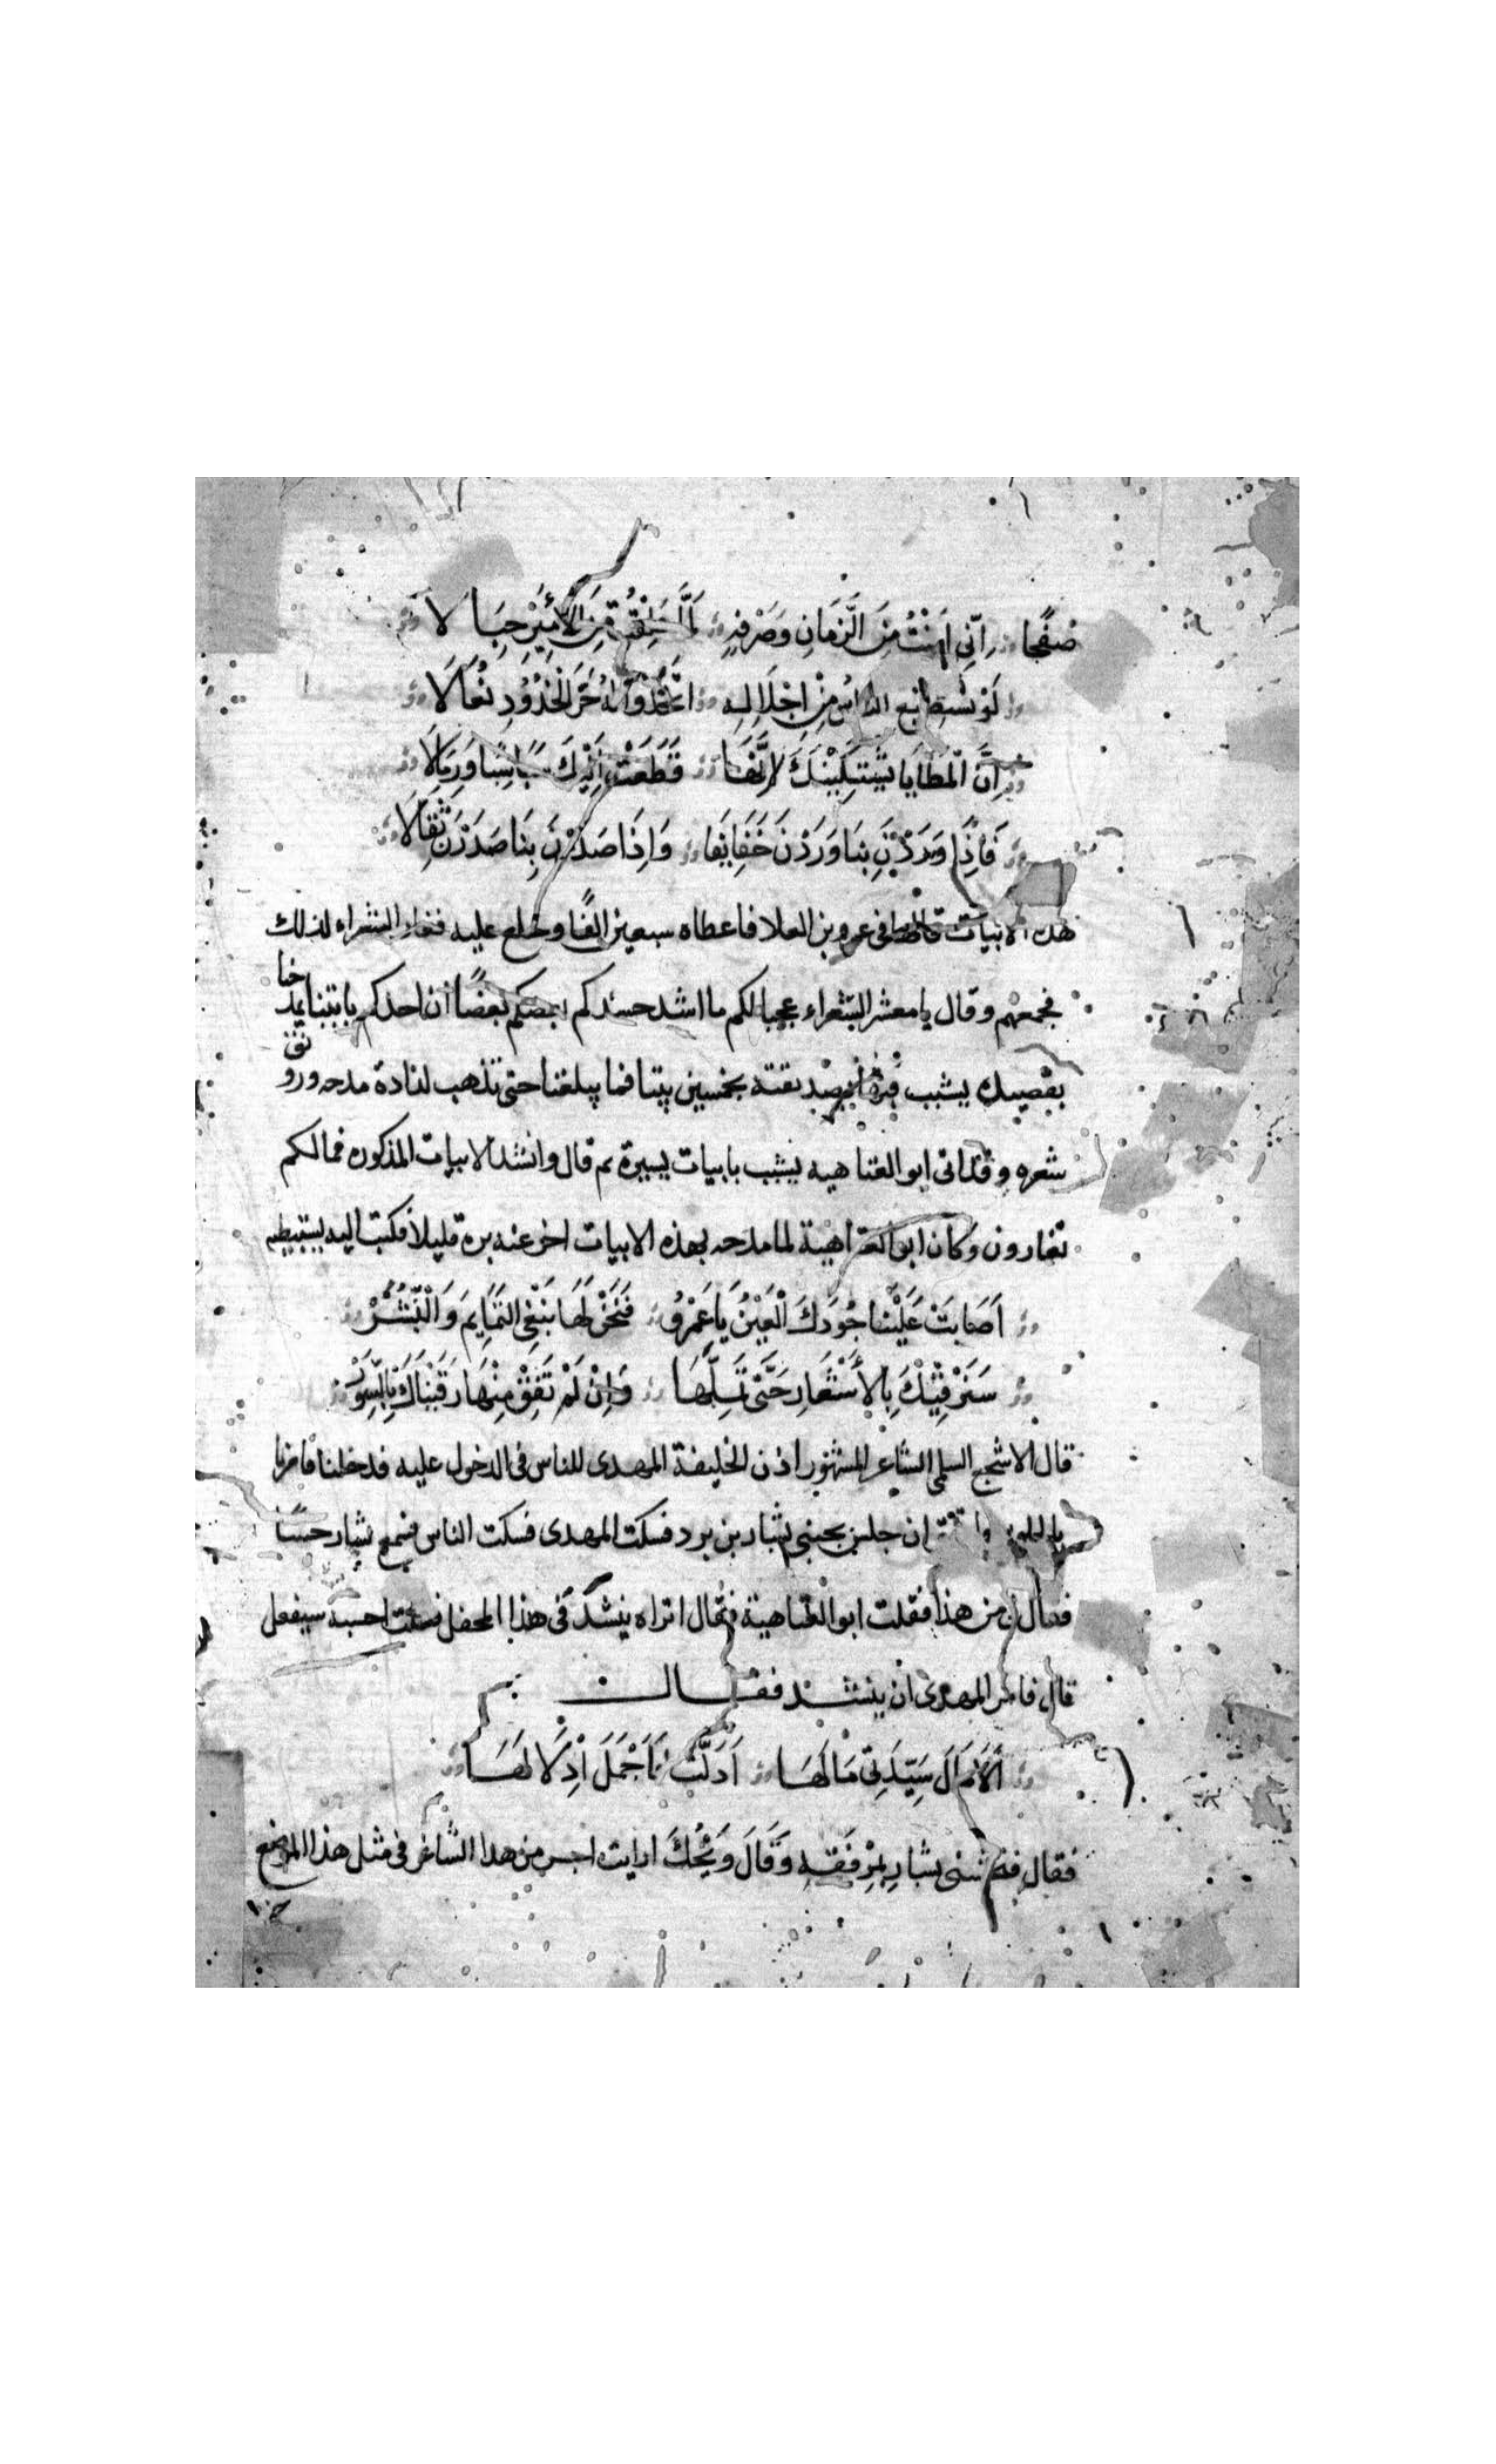 صفحا اني امنت من الزمان وصرفه لما علقت من الأمير حبالا
لو يستطيع الناس من اجلاله اتخذوا له حر الخدود نعالا
ان المطايا تشتكيك لانها قطعت اليك سباسبا ورمالا
فاذا وردن بنا وردن خفايفا واذا صدرن بنا صدرن ثقالا
هذه الابيات قالها في عمرو بن العلا فاعطاه سبعين الفا وخلع عليه فغار الشعراء لذلك
فجمعهم وقال يا معشر الشعراء عجبا لكم ما اشد حسدكم بعضكم بعضا ان احدكم ياتينا يمدحنا
بقصيدة يشبب فيها بصديقته بخمسين بيتا فما يبلغنا حتى تذهب لذاذة مدحه ورونق
شعره وقد اتى ابو العتاهيه يشبب بابيات يسيرة ثم قال وانشد الابيات المذكوره فما لكم
تغارون وكان ابو العتاهية لما مدحه بهذه الابيات اخر عنه بره قليلا فكتب اليه يستبطيه
أصابت علينا جودك العين يا عمرو فنحن لها نبغي التمايم والنشر
سنرقيك بالأشعار حتى تملها وان لم تفق منها رقيناك بالسور
قال الاشجع السلمي الشاعر المشهور اذن الخليفة المهدى للناس في الدخول عليه فدخلنا فامرنا
بالجلوس ان جلس بجنبي بشار بن برد فسكت المهدى فسكت الناس فسمع بشار حسا
فقال لي من هذا فقلت ابو العتاهية فقال اتراه ينشد في هذا المحفل فقلت احسبه سيفعل
قال فامر المهدى ان ينشد فقال
ألا ما ل سيدتي ما لها أدلت فاجمل إدلالها
فقال فنخسني بشار بمرفقه وقال ويحك ارايت اجسر من هذا الشاعر في مثل هذا الموضع